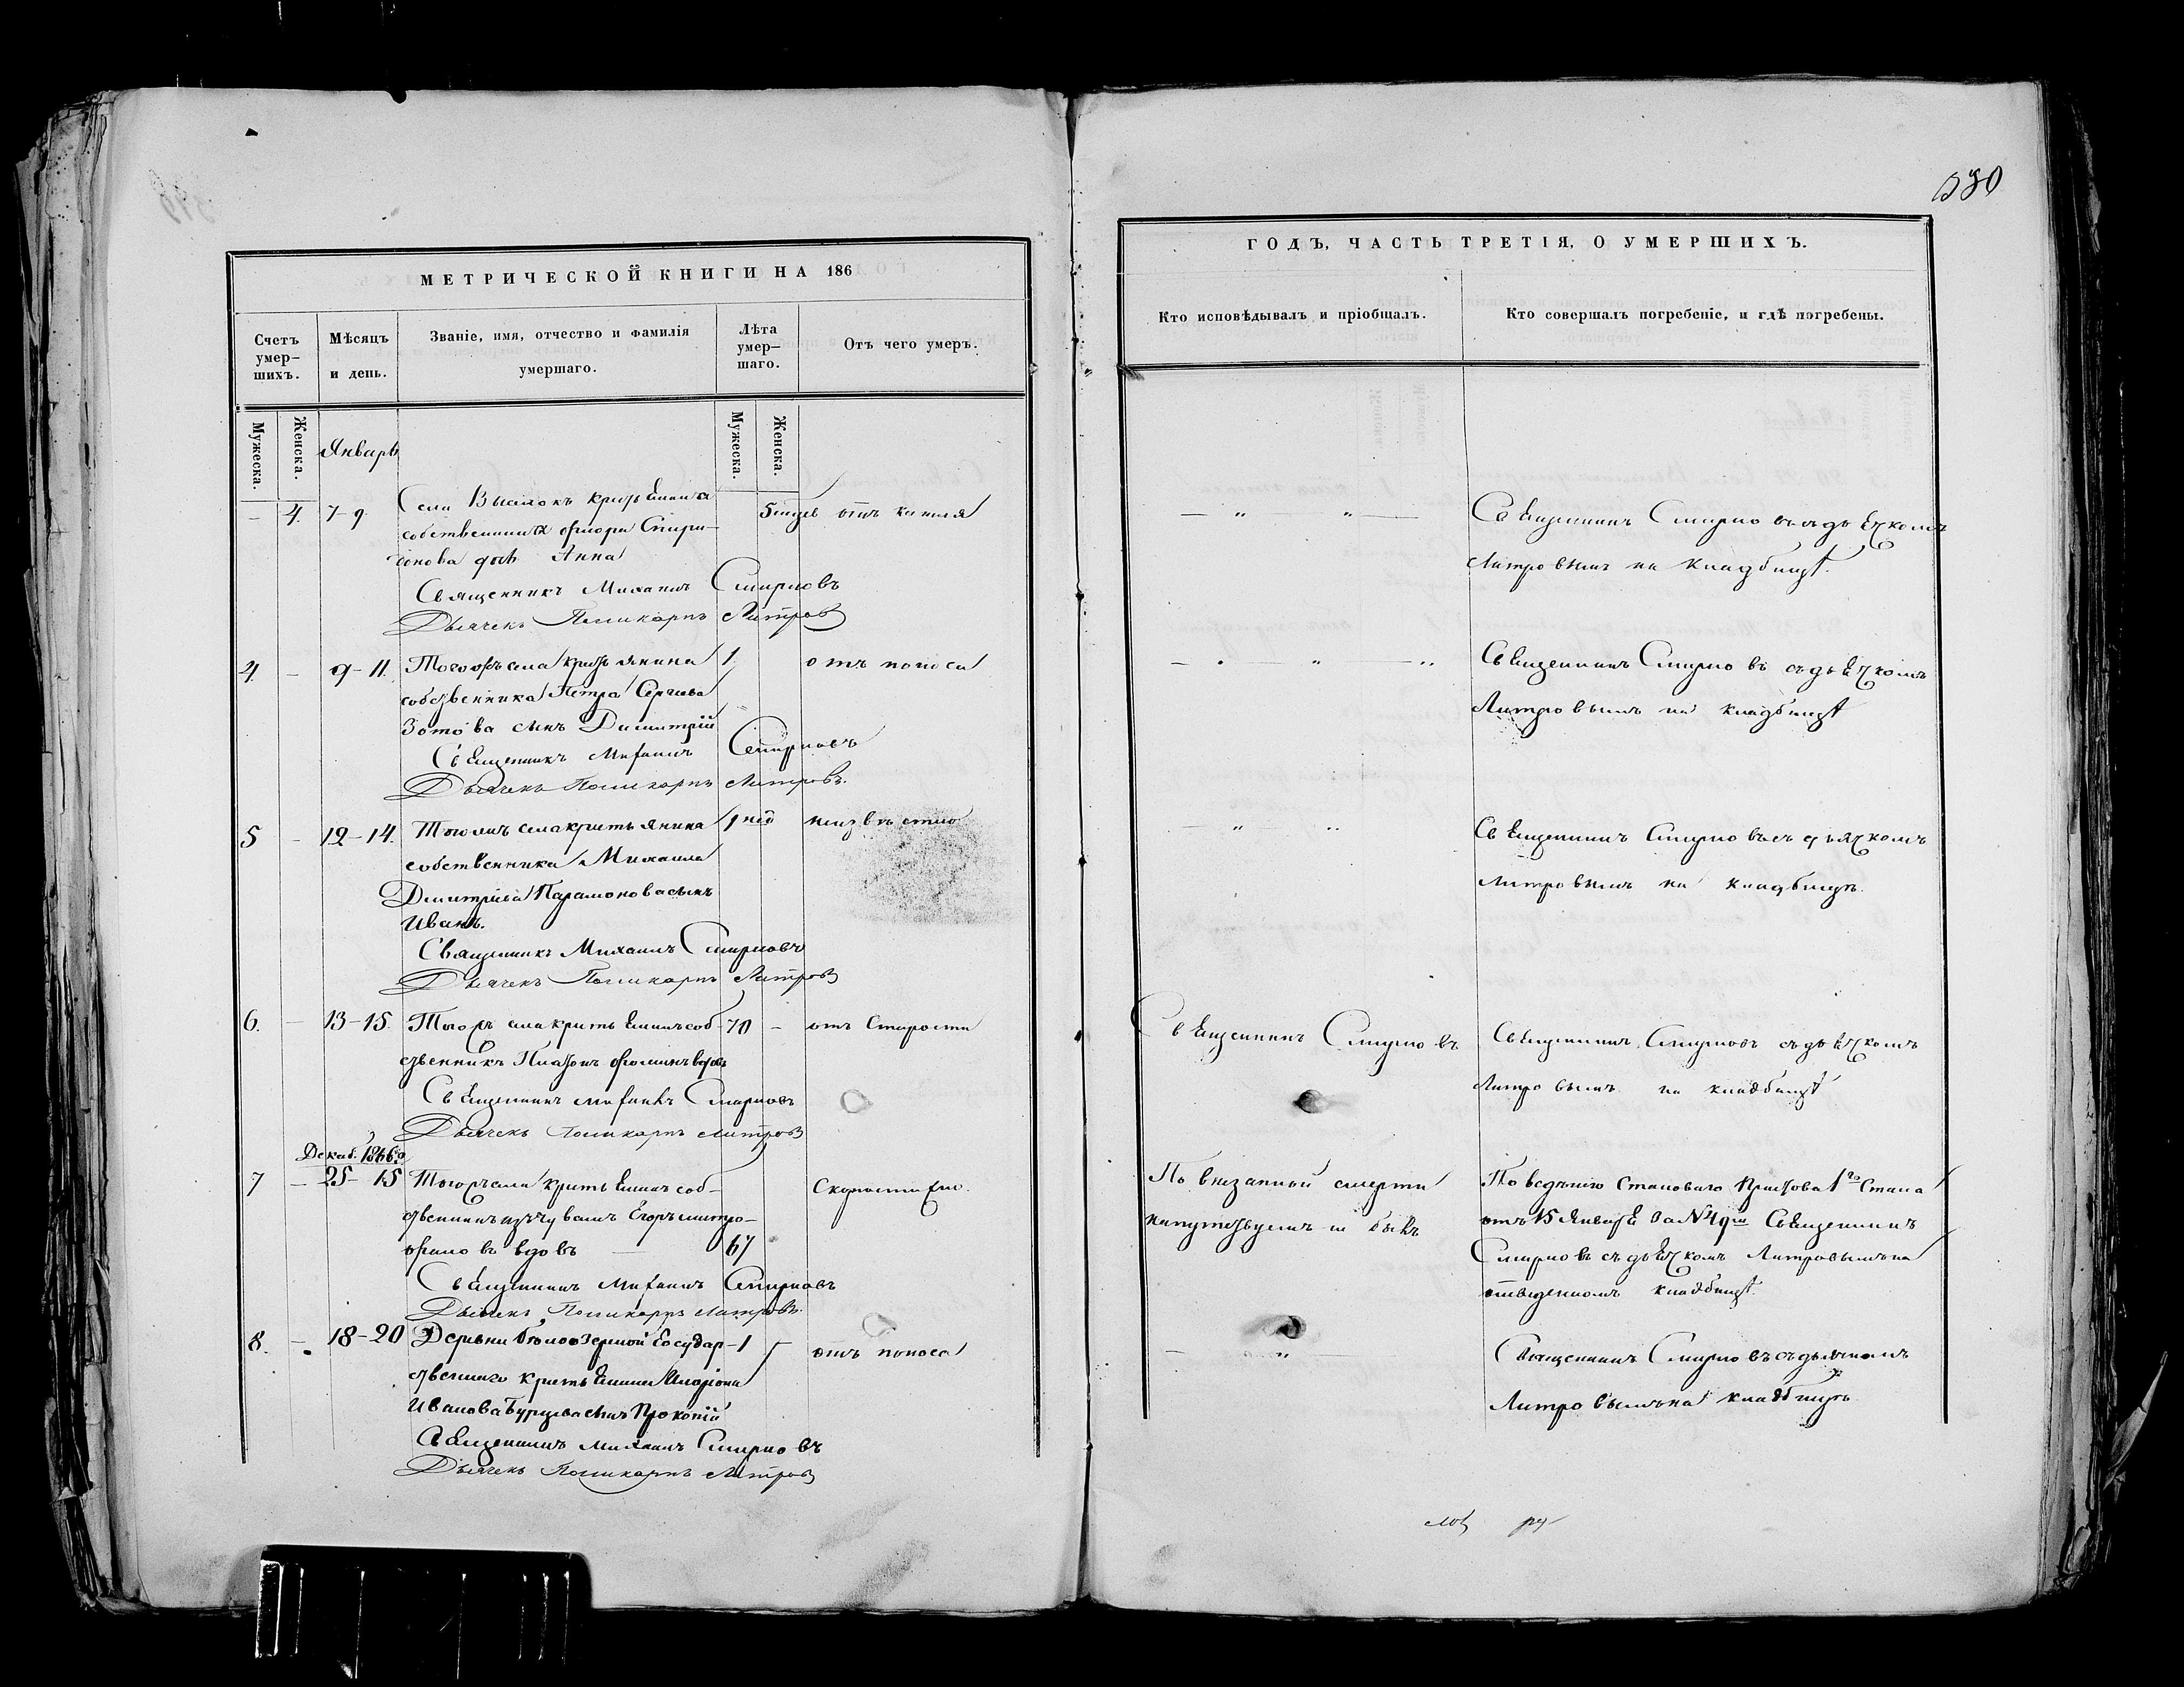 580
МЕТРИЧЕСКОЙ КНИГИ НА 186
Счетъ умер-шихъ.
Мѣсяцъ и день.
Званіе, имя, отчество и фамилія умершаго.
Лѣта умер-шаго.
Отъ чего умеръ.
Мужеска.
Женска.
Январь
Мужеска.
Женска.
4. 7-9. Села Высокъ
собственника Спири-
донова дочь Анна
Священникъ Михаилъ Смирновъ
Дьячекъ Поликарпъ Литровъ
4. 9-11. села крестьянина 1 отъ поноса
собственника Петра Сергѣева
Зотова сынъ Димитрій
Священникъ Михаилъ Смирновъ
Дьячекъ Поликарпъ Литровъ.
5 12-14. села крестьянина 1 нед неизвѣстно
собственника Михаила
Дмитріева Парамонова сынъ
Иванъ.
Священникъ Михаилъ Смирновъ
Дьячекъ Поликарпъ Литровъ
6. 13-15. села крестьянинъ соб- 70 - отъ Старости
ственникъ Платонъ
Священникъ Михаилъ Смирновъ
Дьячекъ Поликарпъ Литровъ
Декаб. 1866 го
7 25-15 села крестьянинъ соб- Скоропостижно.
ственникъ Егоръ Митро-
фановъ вдовъ 67
Священникъ Михаилъ Смирновъ
Дьячекъ Поликарпъ Литровъ.
8. 18-20 Деревни Бѣлоозерной Государ- 1 отъ поноса
ственнаго крестьянина Иларіона
Иванова сынъ Прокопій
Священникъ Михаилъ Смирновъ
Дьячекъ Поликарпъ Литровъ
ГОДЪ, ЧАСТЬ ТРЕТІЯ, О УМЕРШИХЪ.
Кто исповѣдывалъ и пріобщалъ.
Кто совершалъ погребеніе, и гдѣ погребены.
Священникъ Смирновъ съ дьячкомъ
Литровымъ на кладбищѣ.
Священникъ Смирновъ съ дьячкомъ
Литровымъ на кладбищѣ
Священникъ Смирновъ съ дьячкомъ
Литровымъ на кладбищѣ.
Священникъ Смирновъ
Священникъ Смирновъ съ дьячкомъ
Литровымъ на кладбищѣ
По внезапной смерти
напутствуемъ не былъ
По вѣденію Становаго Пристава 1го Стана
отъ 15 Января за № 49м Священникъ
Смирновъ съ дьячкомъ Литровымъ на
отведенномъ кладбищѣ.
Священникъ Смирновъ съ дьячкомъ
Литровымъ на кладбищѣ